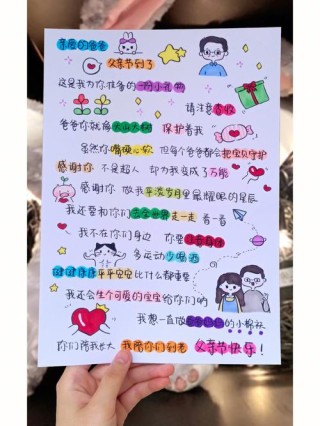 亲爱的爸爸
父亲节到了
这是我为你准备的一份小礼物
请注意查收
爸爸你就像大山大树 保护着我
虽然你嘴硬心软 但每个爸爸都会把宝贝守护
感谢你 不是超人 却为我变成了万能
感谢你 做我平淡岁月里最耀眼的星辰
我还要和你们去全世界走一走 看一看
我不在你们身边 你要
多运动少喝酒
健健康康平平安安比什么都重要
我还会生个可爱的宝宝给你们哟
我想一直做 的小棉袄
你们陪我长大 我陪你们到老 父亲节快乐！